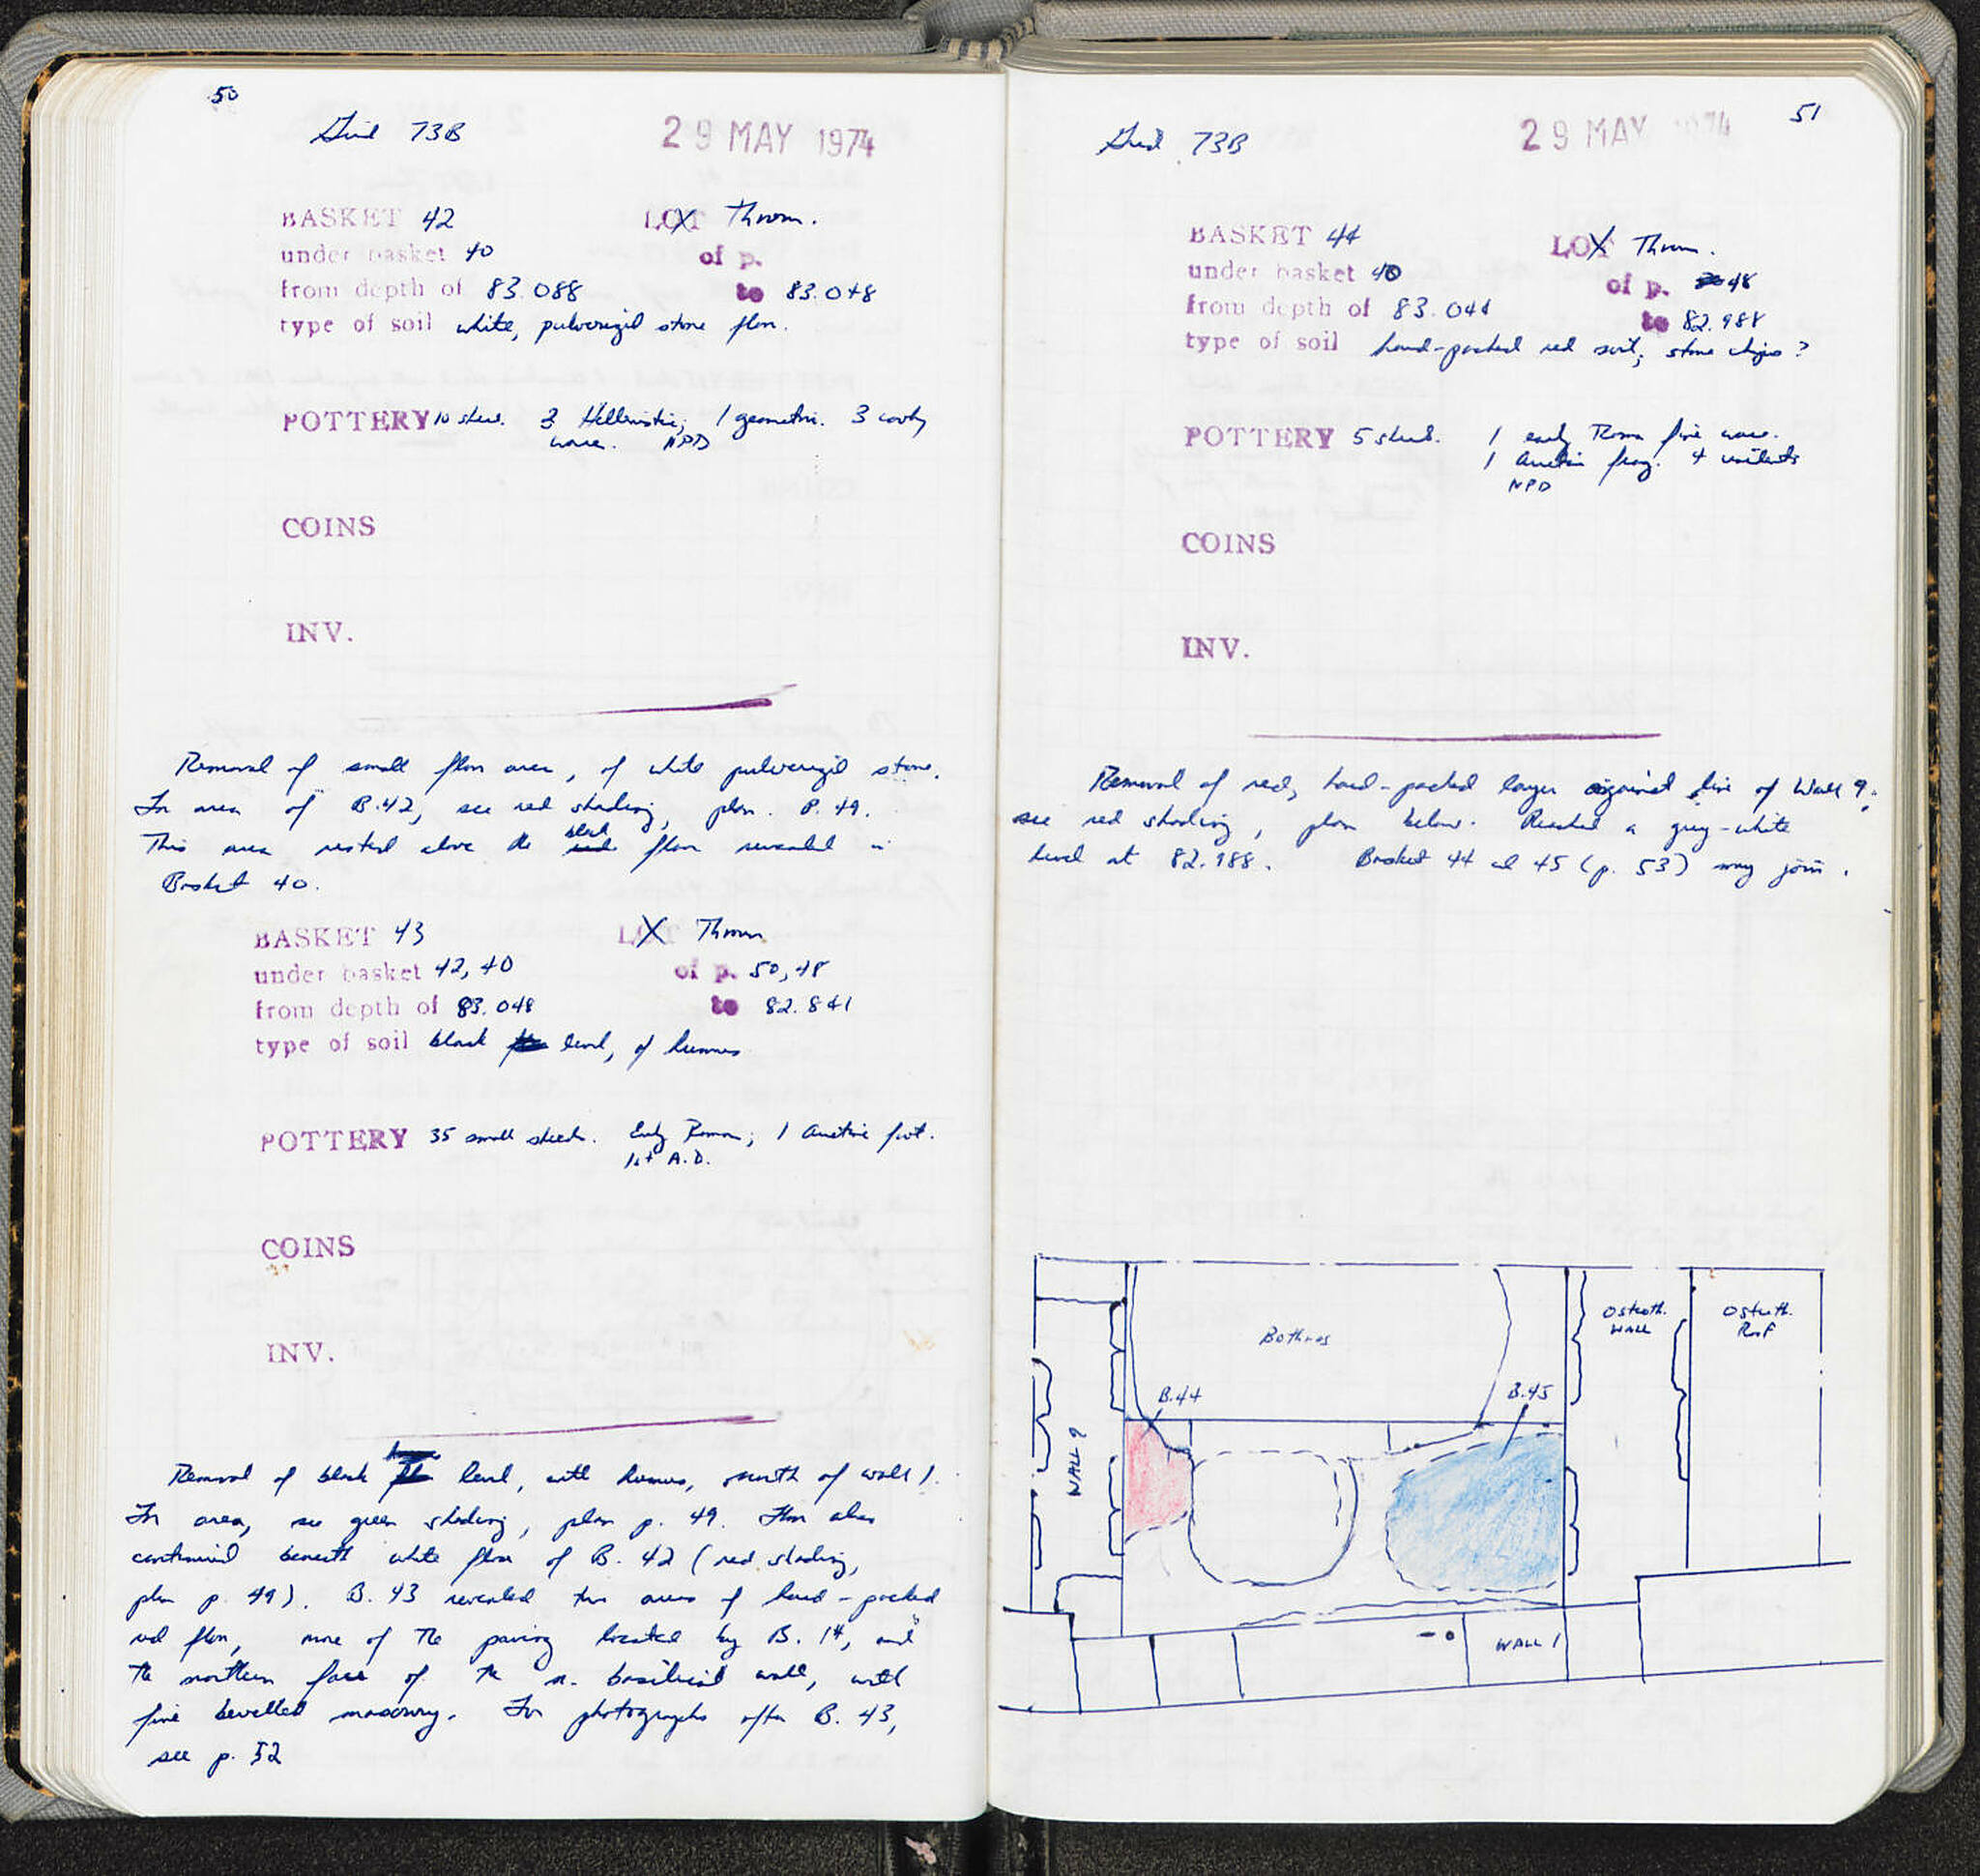 50
Grid 73B 29 MAY 1974
BASKET 42 LOT Thrown.
under basket 40 of p.
from depth of 83.088 to 83.048
type of soil white, pulverized stone floor.
POTTERY 10 sherds. 3 Hellenistic; 1 geometric. 3 cooking
ware. NPD
COINS
INV.
Removal of small floor area, of white pulverized stone.
For area of B.42, see red shading, plan. P. 49.
This area rested above the black floor revealed in
Basket 40.
BASKET 43 LOT Thrown
under basket 42, 40 of p. 50, 48
from depth of 83.048 to 82.841
type of soil black level, of humus
POTTERY 35 small sherds. Early Roman; 1 Arretine foot.
1st A.D.
COINS
INV.
Removal of black level, with humus, north of wall 1.
For area, see green shading, plan p. 49. Floor also
continued beneath white floor of B. 42 (red shading,
plan p. 49). B. 43 revealed two areas of hard-packed
red floor, more of the paving located by B. 14, and
the northern face of the n. basilical wall, with
fine bevelled masonry. For photographs after B. 43,
see p. 52
51
Grid 73B 29 MAY 1974
BASKET 44 LOT Thrown.
under basket 40 of p. 48
from depth of 83.044 to 82.988
type of soil hard-packed red soil, stone chips?
POTTERY 5 sherds. 1 early Roman fine ware.
1 Arretine frag. 4
NPD
COINS
INV.
Removal of red, hard-packed layer against line of Wall 9.
see red shading, plan below. Reached a grey-white
level at 82.988. Basket 44 and 45 (p. 53) may join.
Bothros
Ostroth.
WALL
Ostroth.
Roof
B.44
B.45
WALL 9
WALL 1